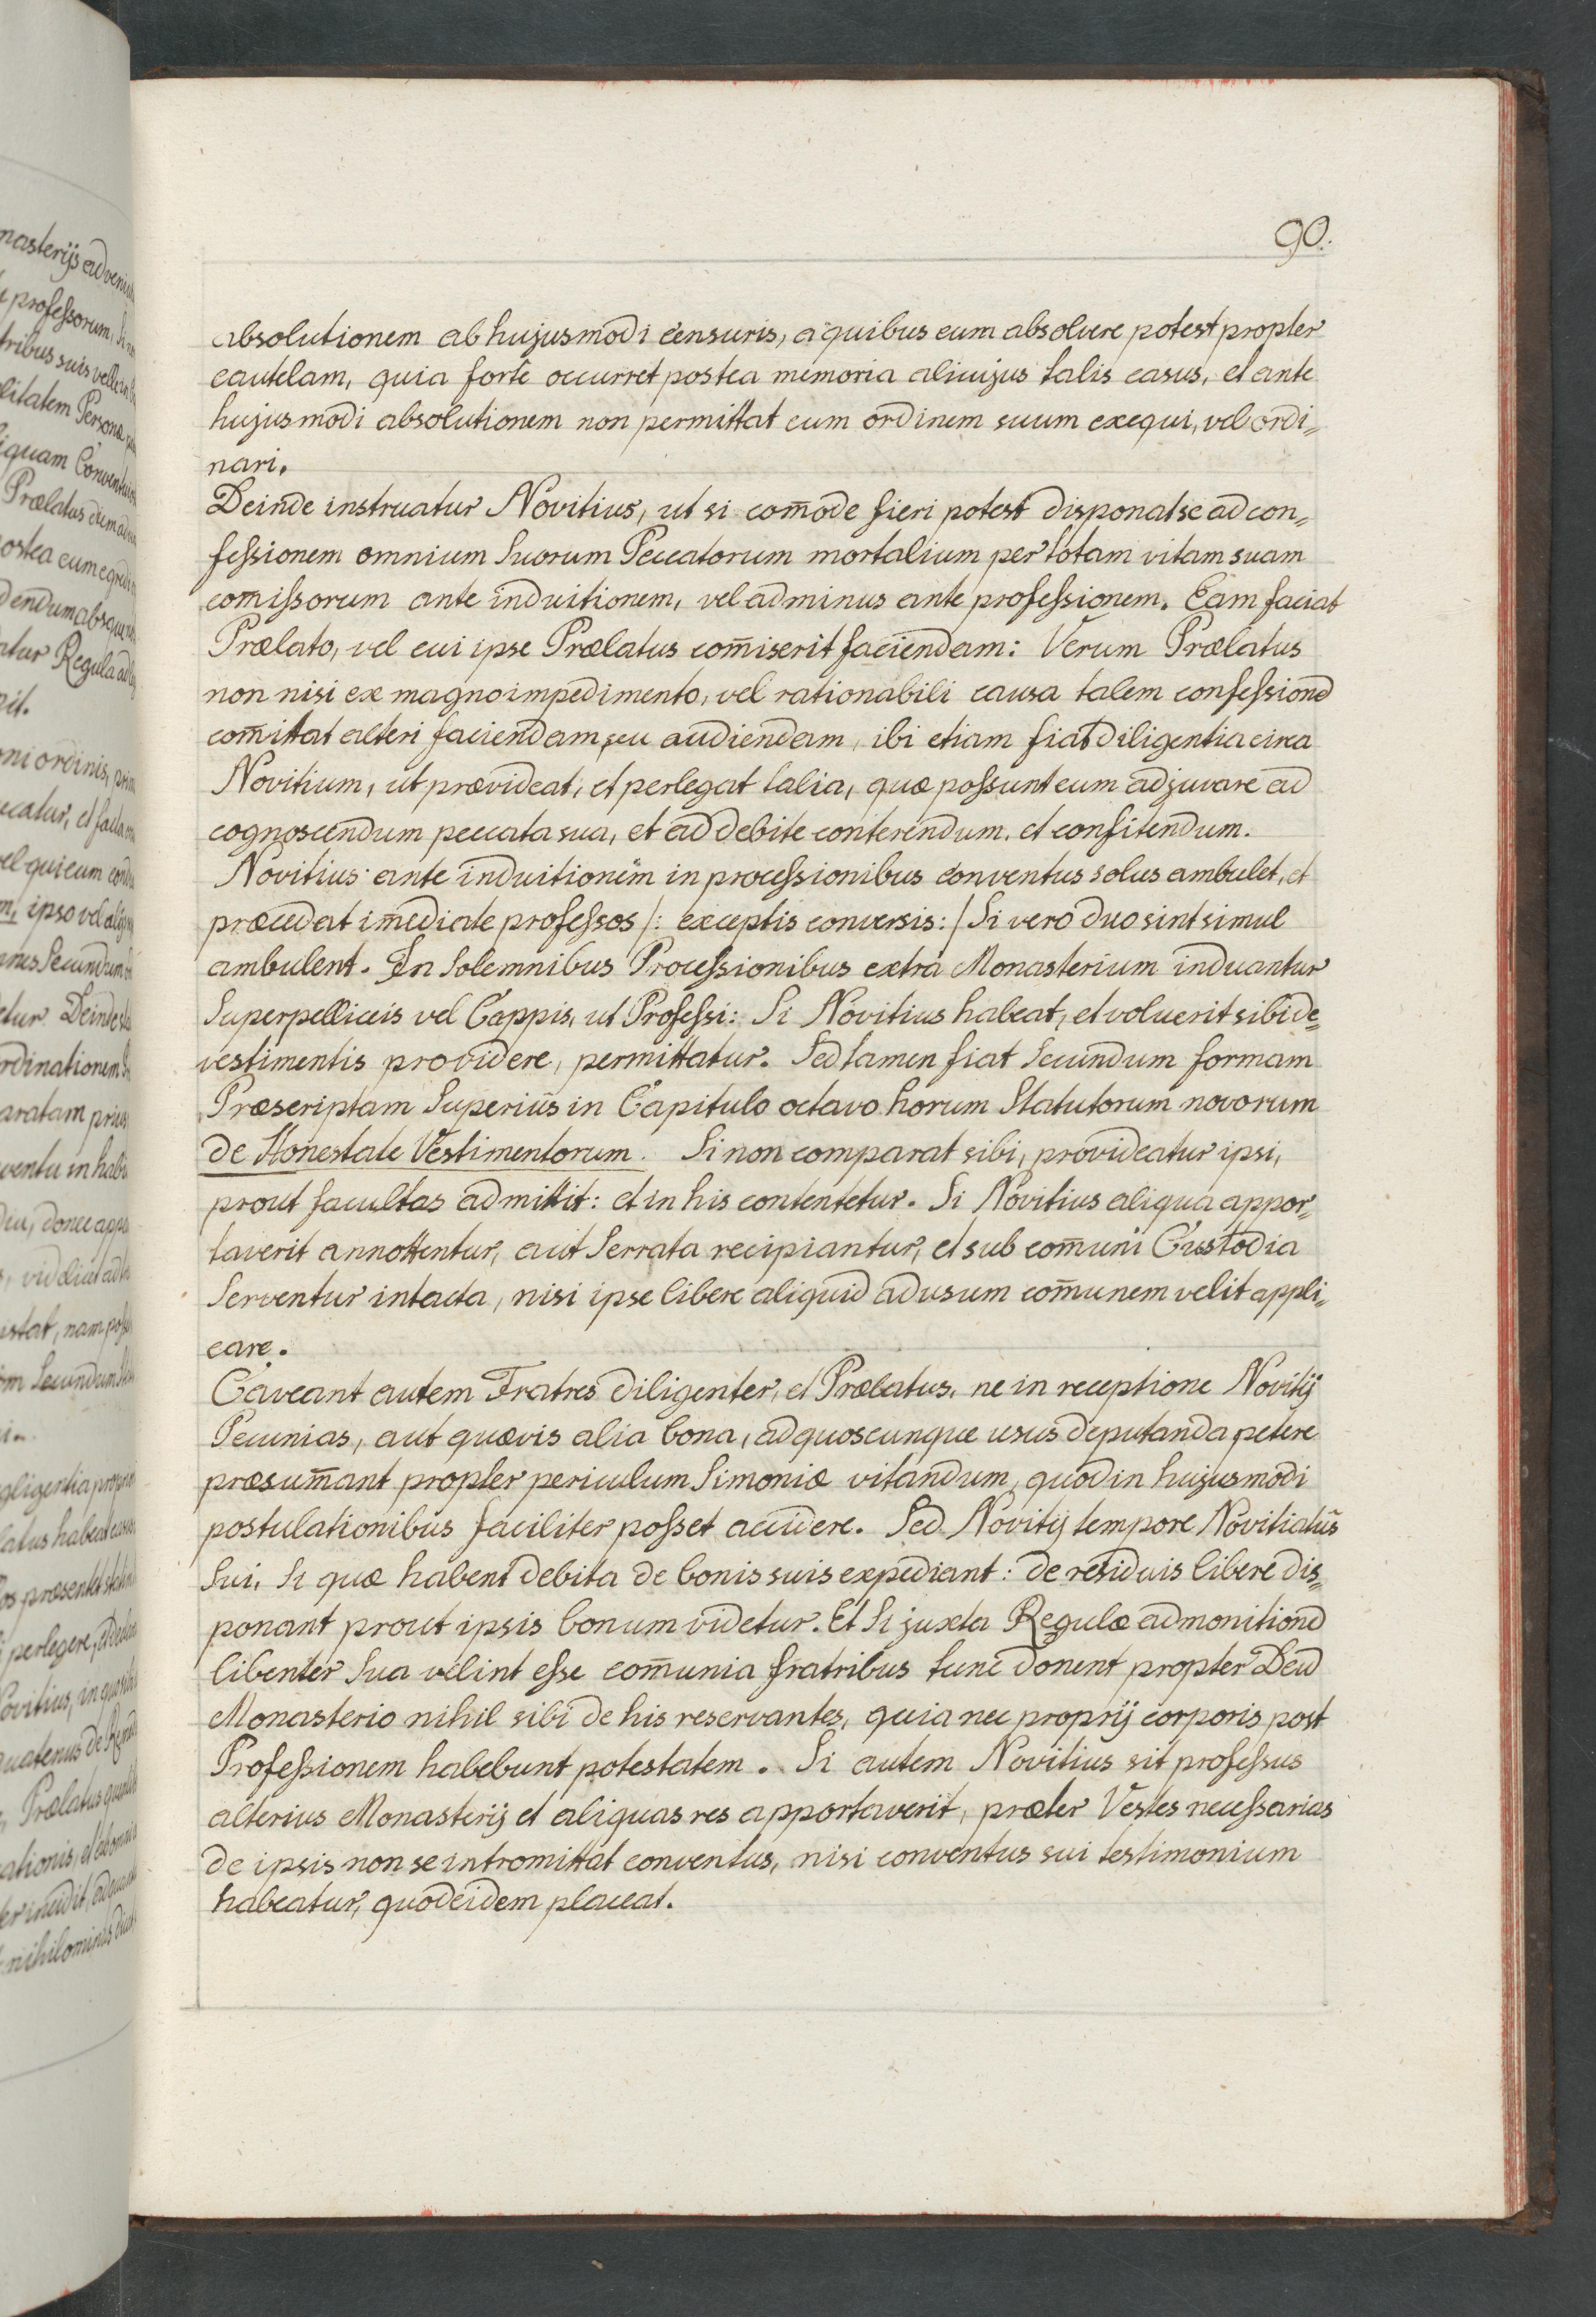 90.
absolutionem ab hujusmodi censuris, a quibus eum absolvere potest propter
cautelam, quia forte occurret postea memoria alicujus talis casus, et ante
hujusmodi absolutionem non permittat eum ordinem suum exequi, vel ordi„
nari.
Deinde instruatur Novitius, ut si com̄ode fieri potest disponat se ad con„
feſsionem omnium Suorum Peccatorum mortalium per totam vitam suam
com̄iſsorum ante induitionem, vel ad minus ante profeſsionem. Eam faciat
Prælato, vel cui ipse Prælatus com̄iserit faciendam: Verum Prælatus
non nisi ex magno impedimento, vel rationabili causa talem confeſsionē
com̄ittat alteri faciendam, seu audiendam, ibi etiam fiat diligentia circa
Novitium, ut prævideat, et perlegat talia, quæ poſsunt eum adjuvare ad
cognoscendum peccata sua, et ad debite conterendum, et confitendum.
Novitius ante induitionem in proceſsionibus conventus solus ambulet, et
præcedat im̄ediate profeſsos /: exceptis conversis: / Si vero duo sint simul
ambulent. In Solemnibus Proceſsionibus extra Monasterium induantur
Superpelliceis vel Cappis, ut Profeſsi: Si Novitius habeat, et voluerit sibi de„
vestimentis providere, permittatur. Sed tamen fiat Secundum formam
Præscriptam Superius in Capitulo octavo horum Statutorum novorum
de Honestate Vestimentorum. Si non comparat sibi, provideatur ipsi,
prout facultas admittit: et in his contentetur. Si Novitius aliqua appor„
taverit annottentur, aut Serrata recipiantur, et sub com̄uni Custodia
Serventur intacta, nisi ipse libere aliquid ad usum com̄unem velit appli„
care.
Caveant autem Fratres diligenter, et Prælatus, ne in receptione Novitij
Pecunias, aut quævis alia bona, ad quoscunque usus deputanda petere
præsum̄ant propter periculum Simoniæ vitandum, quod in hujusmodi
postulationibus faciliter poſset accidere. Sed Novitij tempore Novitiatus
Sui, Si quæ habent debita de bonis suis expediant: de residuis libere dis„
ponant prout ipsis bonum videtur. Et Si juxta Regulæ admonitionē
libenter Sua velint eſse com̄unia fratribus tunc donent propter Deū
Monasterio nihil sibi de his reservantes, quia nec proprij corporis post
Profeſsionem habebunt potestatem. Si autem Novitius sit profeſsus
alterius Monasterij et aliquas res apportaverit, præter Vestes neceſsarias
de ipsis non se intromittat conventus, nisi conventus sui testimonium
habeatur, quod eidem placeat.